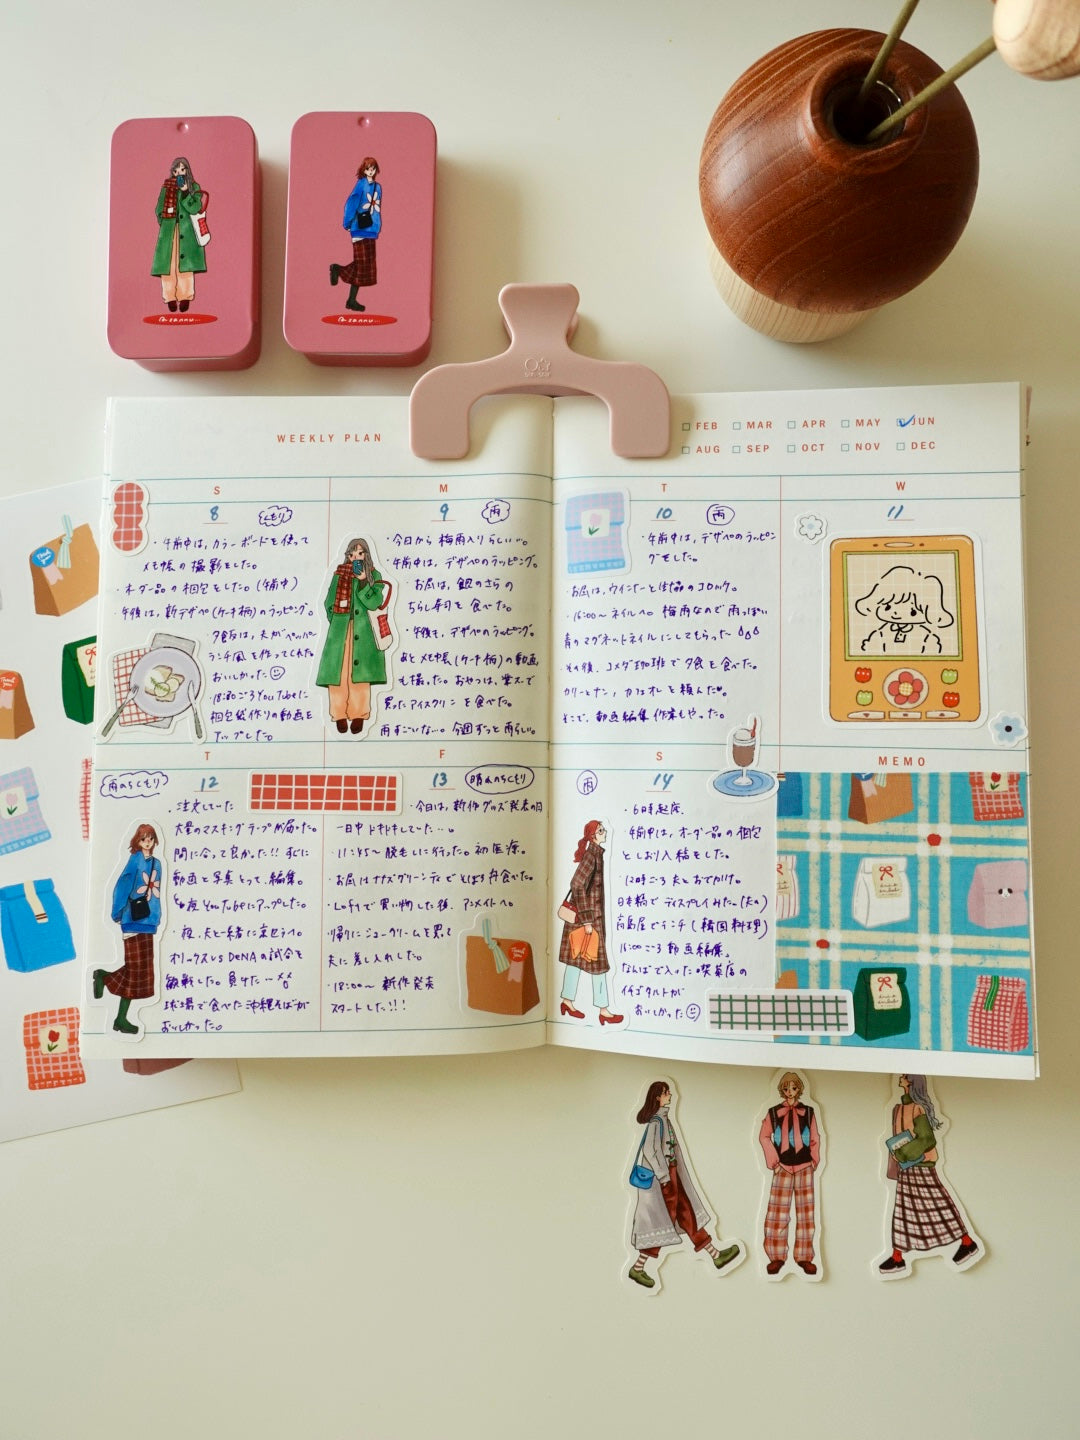 WEEKLY PLAN
FEB MAR APR MAY JUN
AUG SEP OCT NOV DEC
S
8 くもり
・午前中は、カラーボードを使って
メモ帳の撮影をした。
・オーダー品の梱包をした。(午前中)
・午後は、新デザペ(ケーキ柄)のラッピング。
・夕飯は、夫がペッパー
ランチ風を作ってくれた。
おいしかった
・18:30ごろYouTubeに
梱包紙作りの動画を
アップした。
M
9 雨
・今日から梅雨入りらしい…。
・午前中は、デザペのラッピング。
・お昼は、銀のさらの
ちらし寿司を食べた。
・午後も、デザペのラッピング。
あとメモ帳(ケーキ柄)の動画
も撮った。おやつは、業スで
買ったアイスクリンを食べた。
雨すごいな。今週ずっと雨らしい。
T
10 雨
・午前中は、デザペのラッピン
グをした。
・お昼は、ウインナーと のコロッケ。
・16:00〜ネイルへ。梅雨なので雨っぽい
青のマグネットネイルにしてもらった
・その後、コメダ珈琲で夕食を食べた。
カリーとナン、カフェオレを頼んだ♥
そこで、動画編集作業もやった。
W
11
T
雨のちくもり 12
・注文していた
大量のマスキングテープが届いた。
間に合って良かった!!すぐに
動画と写真とって、編集。
夜YouTubeにアップした。
・夜、夫と一緒に京セラへ。
オリックスvsDeNAの試合を
観戦した。負けた…
球場で食べた沖縄そばが
おいしかった。
F
13 晴れのちくもり
・今日は、新作グッズ発表の日
一日中ドキドキしていた…。
・11:45〜脱毛しに行った。初医療。
・お昼はナナズグリーンティでとばろう丼食べた。
・Loftで買い物した後、アニメイトへ。
・帰りにシュークリームを買って
夫に差し入れした。
・18:00〜 新作発表
スタートした!!!
S
雨 14
・6時起床。
・午前中は、オーダー品の梱包
としおり入稿をした。
・12時ごろ夫とおでかけ。
日本橋でディスプレイみた→(夫の)
高島屋でランチ(韓国料理)
16:00ごろ動画編集。
なんばで入った喫茶店の
イチゴタルトが
おいしかった
MEMO